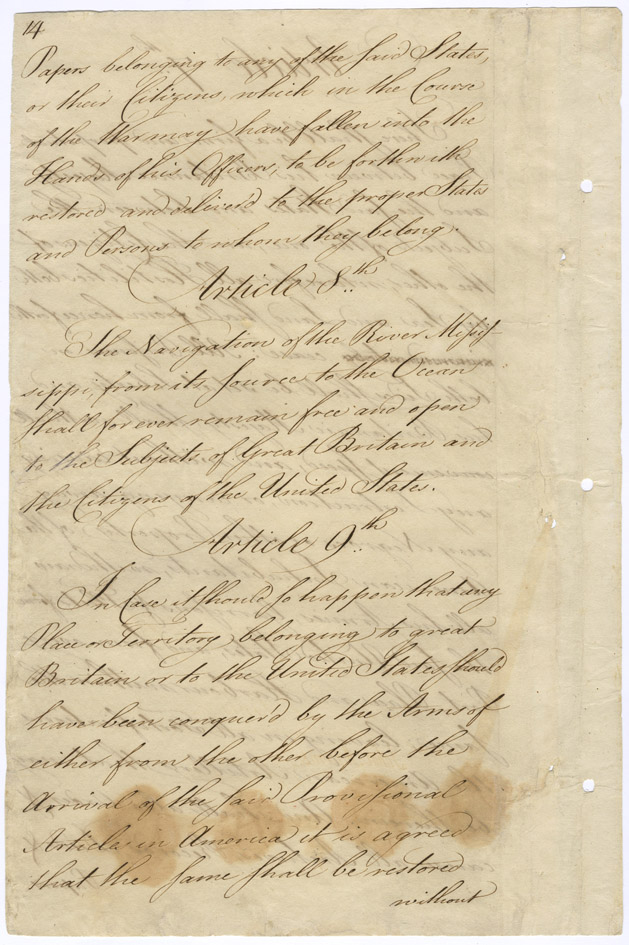 14
Papers belonging to any of the said States,
or their Citizens, which in the Course
of the War may have fallen into the
Hands of his Officers, to be forthwith
restored and deliver'd to the proper States
and Persons to whom they belong.
Article 8.th
The Navigation of the River Missis-
sippi, from its Source to the Ocean
shall for ever remain free and open
to the Subjects of Great Britain and
the Citizens of the United States.
Article 9.th
In Case it should so happen that any
Place or Territory belonging to great
Britain or to the United States should
have been conquer'd by the Arms of
either from the other before the
Arrival of the said Provisional
Articles in America it is agreed
that the same shall be restored
without